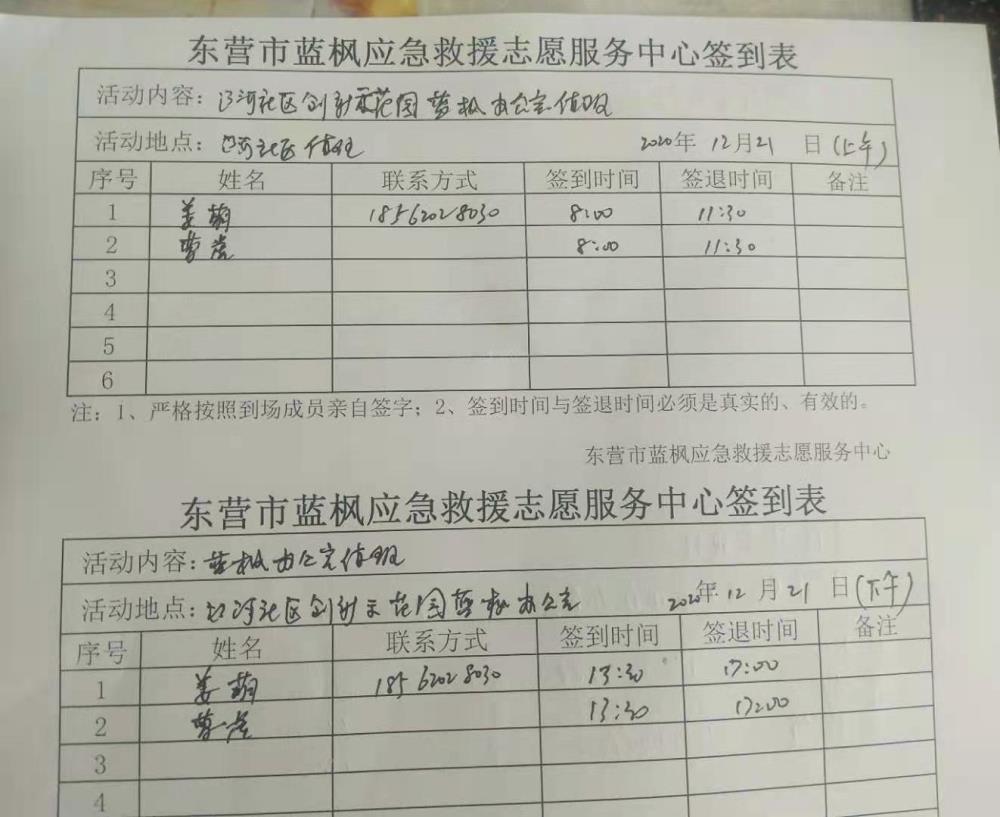 东营市蓝枫应急救援志愿服务中心签到表
活动内容：河社区创新示范园蓝枫办公室值班
活动地点：河社区值班 2020年 12月21 日(上午)
序号 姓名 联系方式 签到时间 签退时间 备注
1 姜萌 18562028030 8:00 11:30
2 曹 8:00 11:30
3
4
5
6
注：1、严格按照到场成员亲自签字；2、签到时间与签退时间必须是真实的、有效的。
东营市蓝枫应急救援志愿服务中心
东营市蓝枫应急救援志愿服务中心签到表
活动内容：蓝枫办公室值班
活动地点：河社区创新示范园蓝枫办公室 2020年 12月21 日(下午)
序号 姓名 联系方式 签到时间 签退时间 备注
1 姜萌 18562028030 13:30 17:00
2 曹 13:30 17:00
3
4